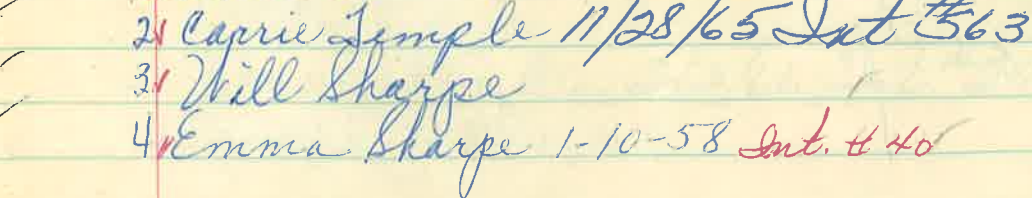 2 Carrie Temple 11/28/65 Int #563
3 Will Sharpe
4 Emma Sharpe 1-10-58 Int. # 40